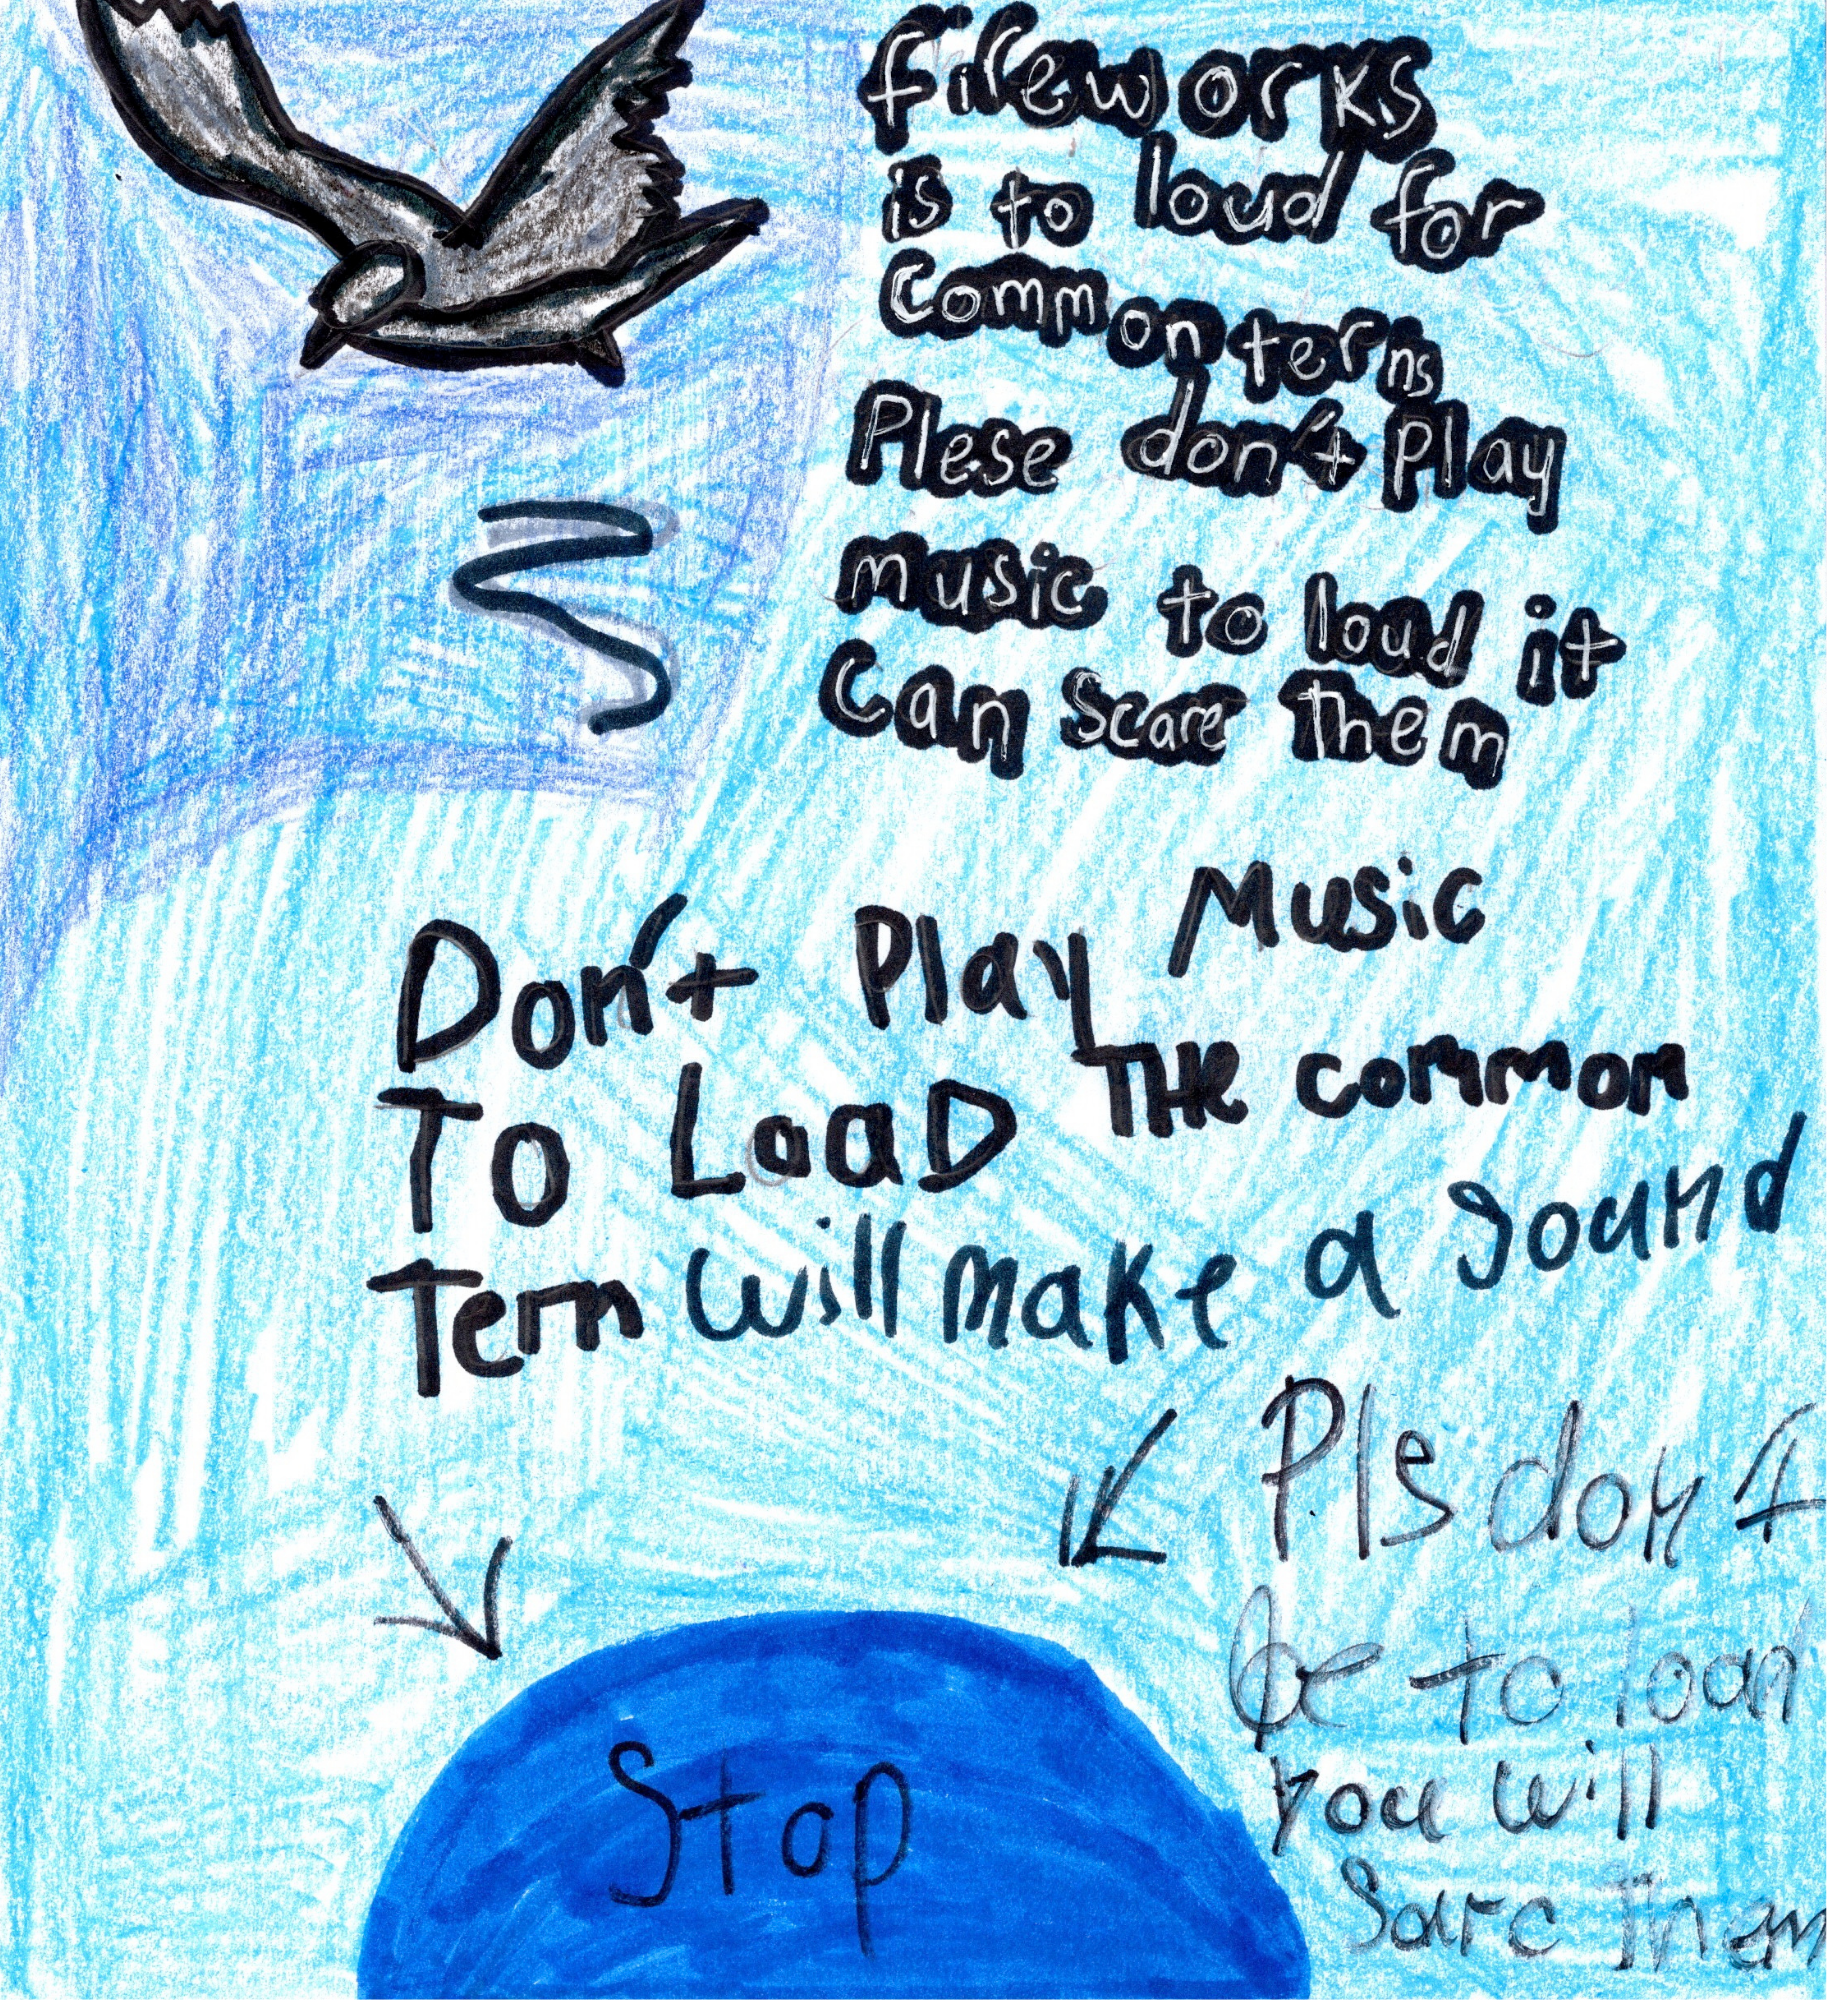 fireworks
is to loud for
Common terns
Plese don't play
music to loud it
Can Scare Them
Don't Play Music
To LoaD THe common
Tern will make a sound
Pls don't
be to load
you will
Sarc Them
Stop